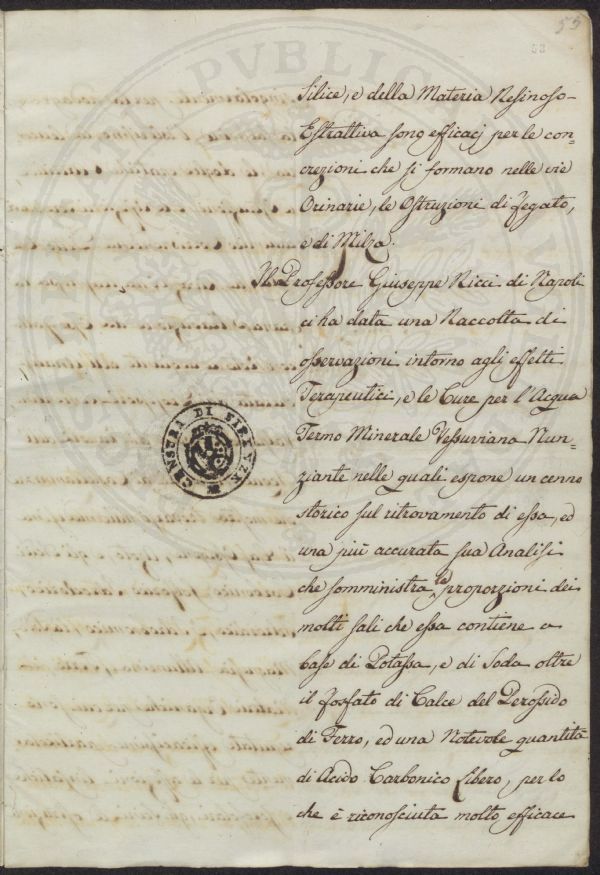 53
53
Silice, e della Materia Resinoso-
Estrattiva sono efficacj per le con=
crezioni che si formano nelle vie
Orinarie, le Ostruzioni di fegato,
e di Milza.
Il Professore Giuseppe Ricci di Napoli
ci ha data una Raccolta di
osservazioni intorno agli effetti
Terapeutici, e le Cure per l'Acqua
Termo Minerale Vessuviana Nun=
ziante nelle quali espone un cenno
storico sul ritrovamento di essa, ed
una più accurata sua Analisi
che somministra le proporzioni dei
molti sali che essa contiene a
base di Potassa, e di Soda oltre
il fosfato di Calce del Perossido
di Ferro, ed una Notevole quantità
di Acido Carbonico Libero, per lo
che è riconosciuta molto efficace
CENSURA DI FIRENZE